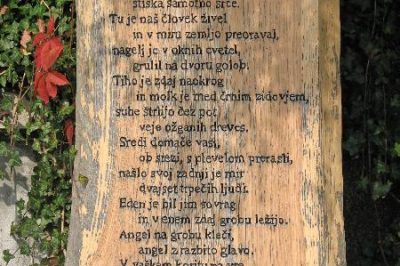 stiska samotno srce.
Tu je naš človek živel
in v miru zemljo preoraval,
nagelj je v oknih cvetel,
grulil na dvoru golob.
Tiho je zdaj naokrog
in molk je med črnim zidovjem,
suhe štrlijo čez pot
veje ožganih dreves.
Sredi domače vasi,
ob stezi, s plevelom prerasli,
našlo svoj zadnji je mir
dvajset trpečih ljudi.
Eden je bil jim sovrag
in v enem zdaj grobu ležijo.
Angel na grobu kleči,
angel z razbito glavo.
V vaškem koritu